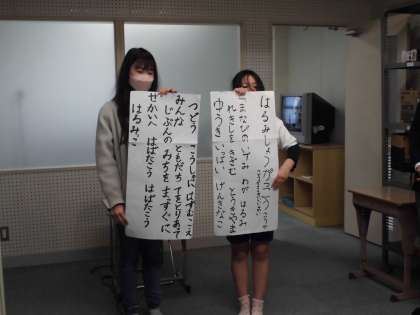 はるみしょうがっこうこうか
まなびの いずみ わが はるみ
れきしを きざむ とうかやま
ゆうき いっぱい げんきなこ
つどう こうしゃに はずむこえ
みんな ともだち てをとりあて
じぶんの みちを まっすぐに
せかいへ はばたこう はばたこう
はるみこ